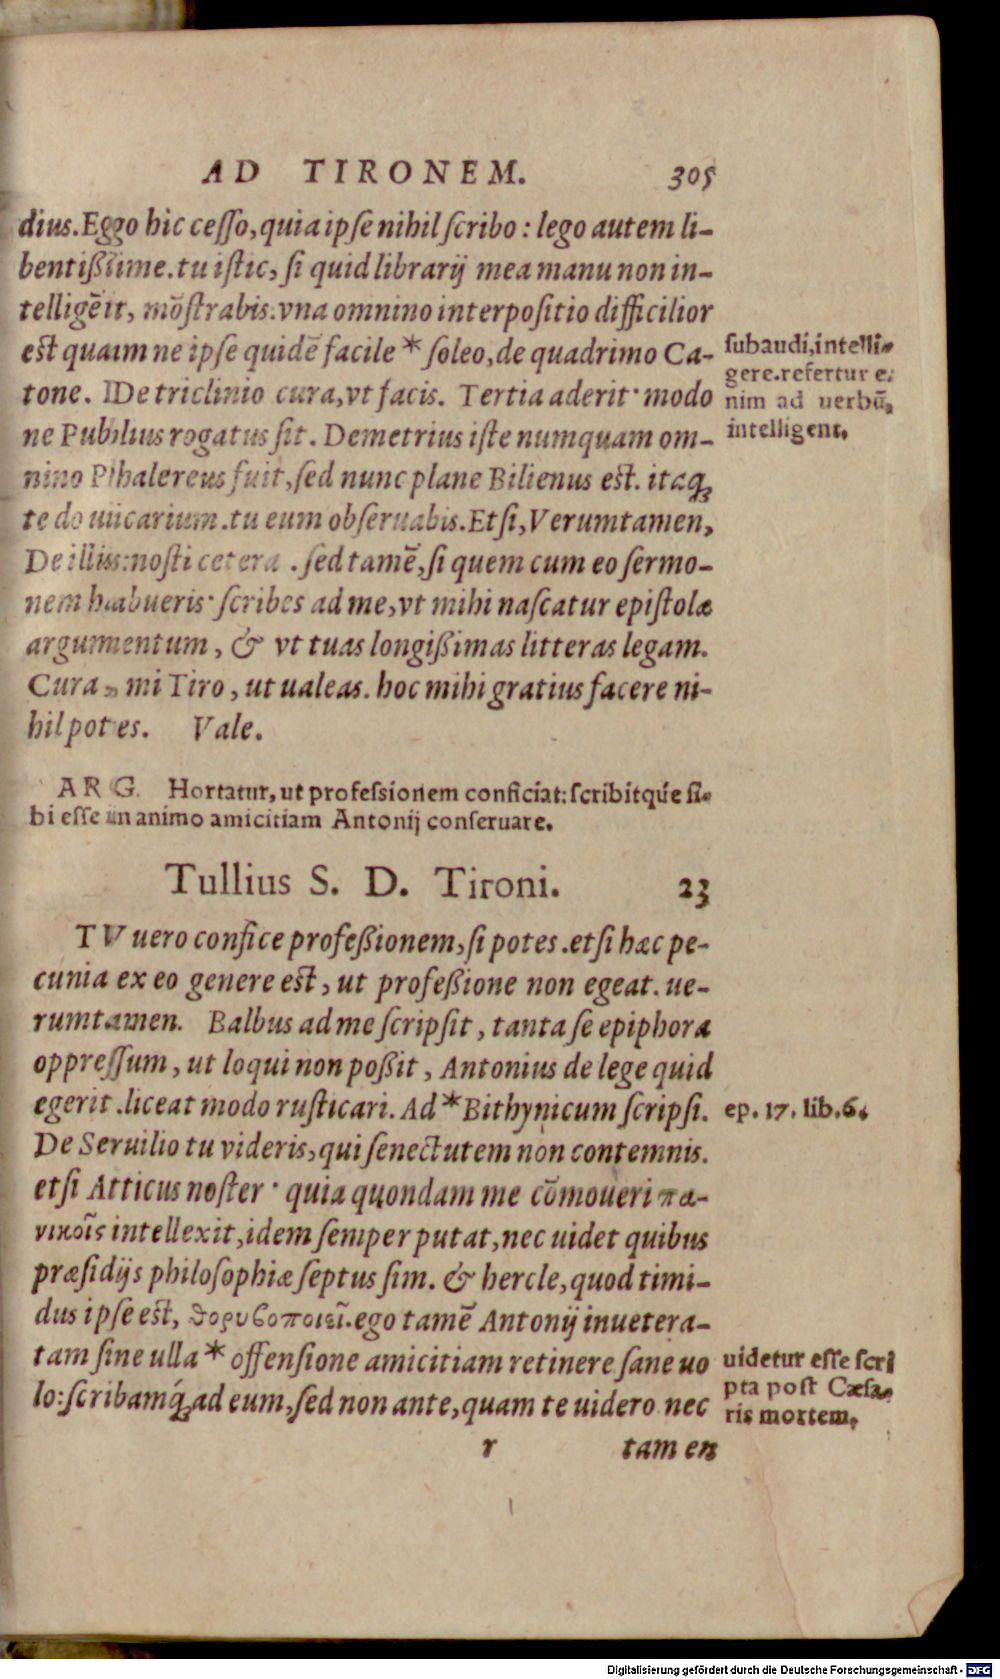 AD TIRONEM. 305
dius. Ego hic cesso, quia ipse nihil scribo: lego autem li-
bentißime. tu istic, si quid librarij mea manu non in-
telligẽt, mõstrabis. vna omnino interpositio difficilior
est quam ne ipse quidẽ facile * soleo, de quadrimo Ca-
tone. De triclinio cura, vt facis. Tertia aderit· modo
ne Publius rogatus sit. Demetrius iste numquam om-
nino Phalereus fuit, sed nunc plane Bilienus est. itaq;
te do uicarium. tu eum obseruabis. Etsi, Verumtamen,
De illis: nosti cetera . sed tamẽ, si quem cum eo sermo-
nem habueris· scribes ad me, vt mihi nascatur epistolæ
argumentum, & vt tuas longißimas litteras legam.
Cura, mi Tiro, ut ualeas. hoc mihi gratius facere ni-
hil potes. Vale.
subaudi, intelli-
gere. refertur e-
nim ad uerbũ,
intelligent.
ARG. Hortatur, ut professionem conficiat: scribitqúe si-
bi esse in animo amicitiam Antonij conseruare.
Tullius S. D. Tironi. 23
TV uero confice profeßionem, si potes. etsi hæc pe-
cunia ex eo genere est, ut profeßione non egeat. ue-
rumtamen. Balbus ad me scripsit, tanta se epiphora
oppressum, ut loqui non poßit, Antonius de lege quid
egerit. liceat modo rusticari. Ad * Bithynicum scripsi.
ep. 17. lib. 6.
De Seruilio tu videris, qui senectutem non contemnis.
etsi Atticus noster· quia quondam me cõmoueri πα-
νικοῖς intellexit, idem semper putat, nec uidet quibus
præsidijs philosophiæ septus sim. & hercle, quod timi-
dus ipse est, θορυβοποιεῖ. ego tamẽ Antonij inuetera-
tam sine ulla * offensione amicitiam retinere sane uo
lo: scribamq́; ad eum, sed non ante, quam te uidero. nec
uidetur esse scri
pta post Cæsa-
ris mortem.
r tamen
Digitalisierung gefördert durch die Deutsche Forschungsgemeinschaft - DFG